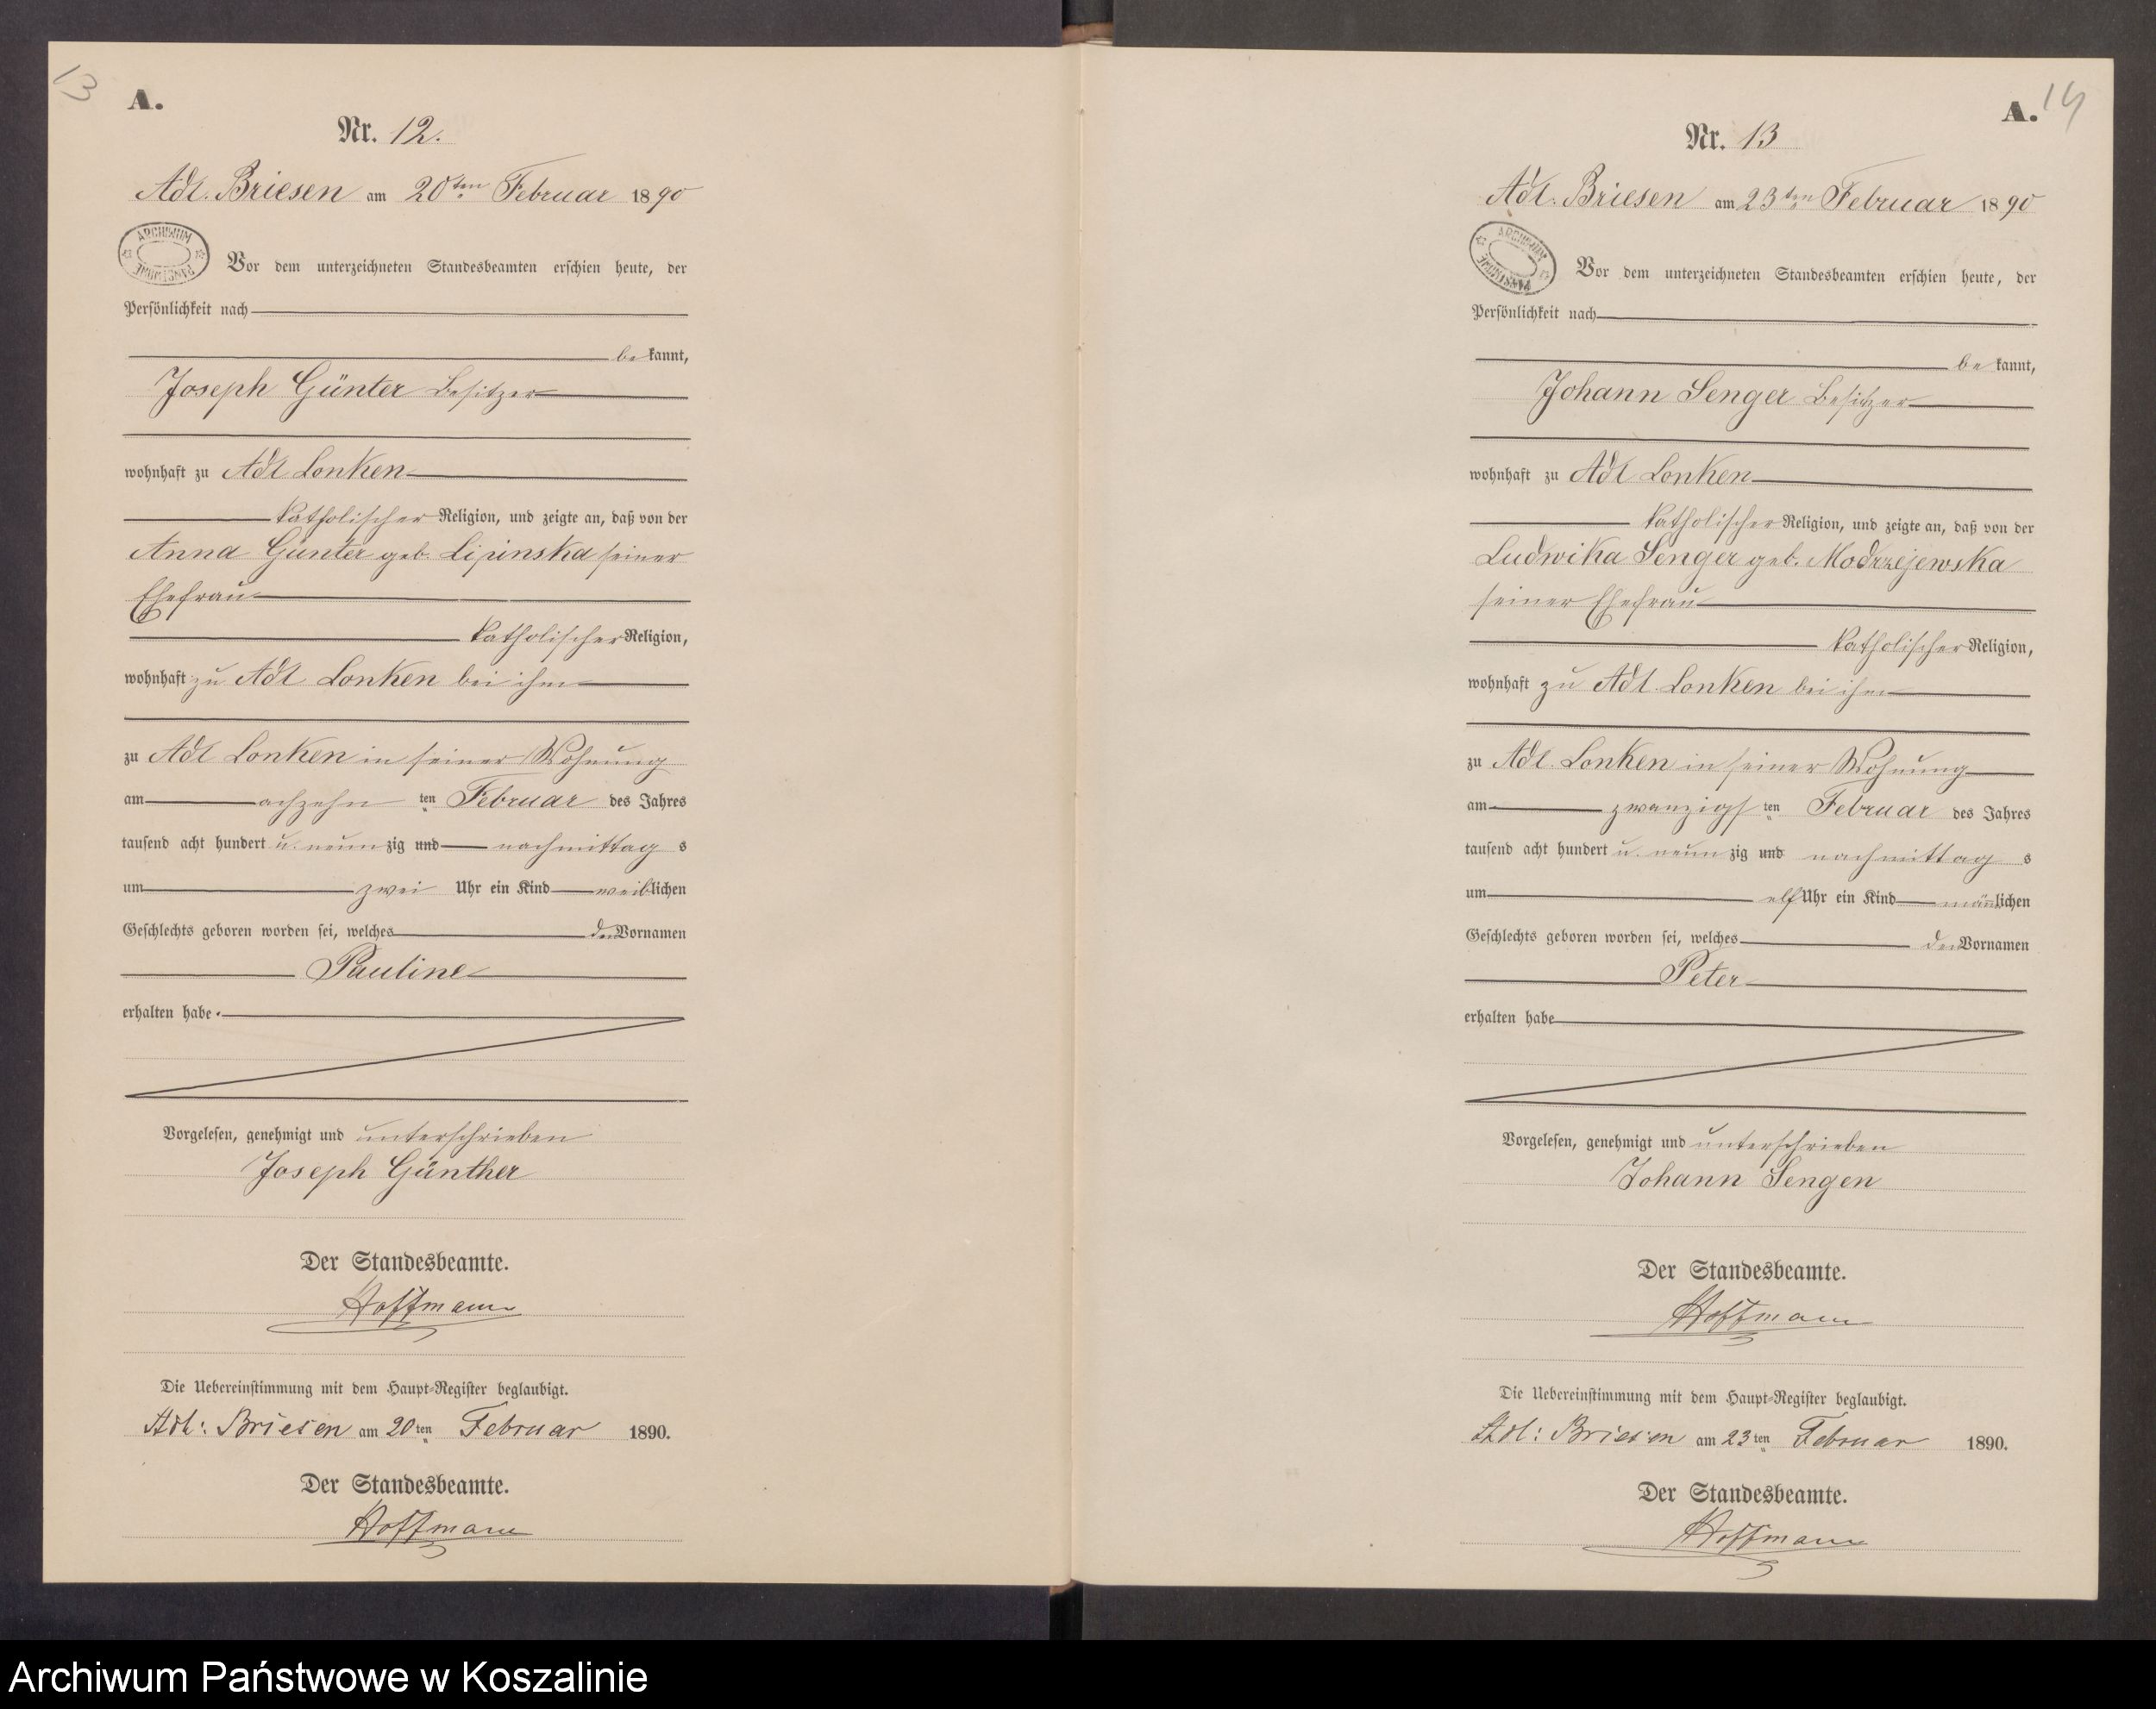 13
A.
Nr. 12.
Adl. Briesen am 20ten Februar 1890
ARCHIWUM PAŃSTWOWE
Vor dem unterzeichneten Standesbeamten erschien heute, der
Persönlichkeit nach
bekannt,
Joseph Günter Besitzer
wohnhaft zu Adl Lonken
katholischer Religion, und zeigte an, daß von der
Anna Günter geb. Lipinska seiner
Ehefrau
katholischer Religion,
wohnhaft zu Adl Lonken bei ihm
zu Adl Lonken in seiner Wohnung
am achzehn ten Februar des Jahres
tausend acht hundert u. neunzig und nachmittag s
um zwei Uhr ein Kind weiblichen
Geschlechts geboren worden sei, welches den Vornamen
Pauline
erhalten habe.
Vorgelesen, genehmigt und unterschrieben
Joseph Günther
Der Standesbeamte.
Hoffmann
Die Uebereinstimmung mit dem Haupt-Register beglaubigt.
Adl: Briesen am 20ten Februar 1890.
Der Standesbeamte.
Hoffmann
14
A.
Nr. 13
Adl. Briesen am 23ten Februar 1890
ARCHIWUM PAŃSTWOWE
Vor dem unterzeichneten Standesbeamten erschien heute, der
Persönlichkeit nach
bekannt,
Johann Senger Besitzer
wohnhaft zu Adl Lonken
katholischer Religion, und zeigte an, daß von der
Ludwika Senger geb. Modrzejewska
seiner Ehefrau
katholischer Religion,
wohnhaft zu Adl. Lonken bei ihm
zu Adl. Lonken in seiner Wohnung
am zwanzigsten Februar des Jahres
tausend acht hundert u. neunzig und nachmittag s
um elf Uhr ein Kind männlichen
Geschlechts geboren worden sei, welches den Vornamen
Peter
erhalten habe
Vorgelesen, genehmigt und unterschrieben
Johann Sengen
Der Standesbeamte.
Hoffmann
Die Uebereinstimmung mit dem Haupt-Register beglaubigt.
Adl: Briesen am 23ten Februar 1890.
Der Standesbeamte.
Hoffmann
Archiwum Państwowe w Koszalinie